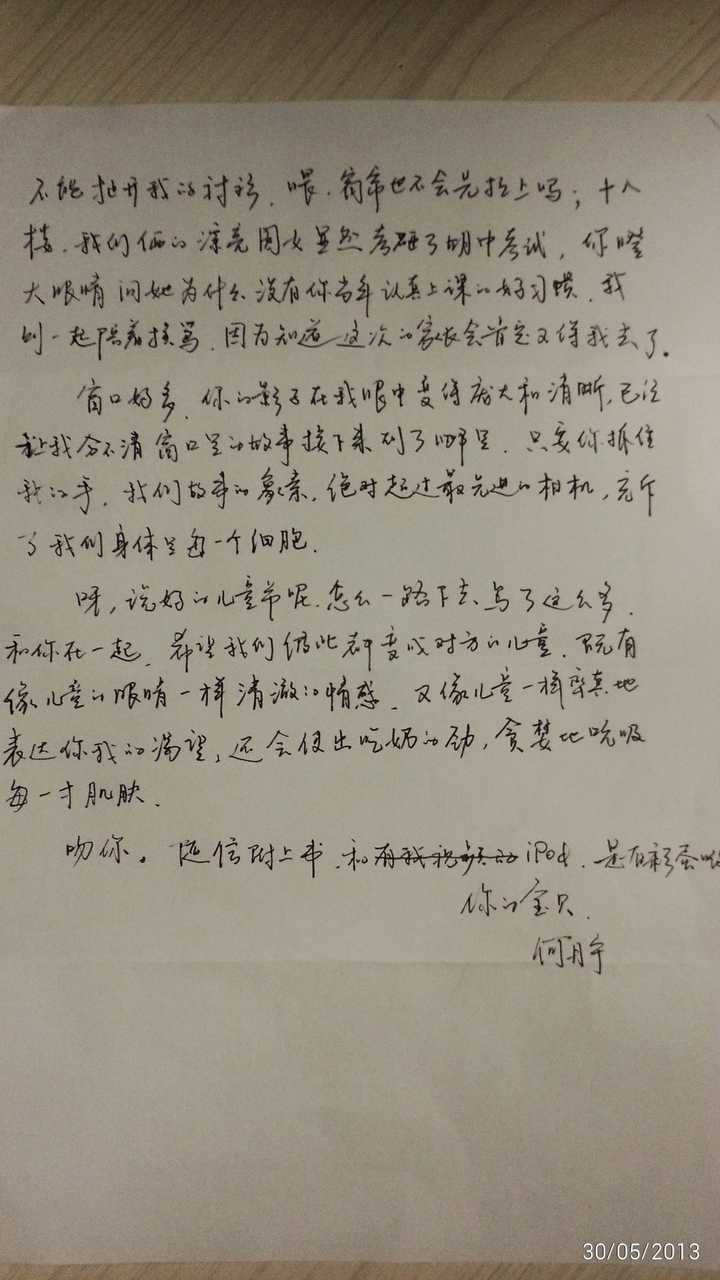 不能扯开我的衬衫，喂，窗帘也不会先拉上吗；十八
楼，我们俩的漂亮闺女显然考砸了期中考试，你瞪
大眼睛问她为什么没有你当年认真上课的好习惯，我
则一起陪着挨骂，因为知道这次的家长会肯定又得我去了。
窗口好多，你的影子在我眼中变得庞大和清晰，已经
让我分不清窗口里的故事接下来到了哪里，只要你抓住
我的手，我们故事的象素，绝对超过最先进的相机，充斥
了我们身体里每一个细胞．
呀，说好的儿童节呢，怎么一路下去写了这么多，
和你在一起，希望我们彼此都变成对方的儿童，既有
像儿童的眼睛一样清澈的情感，又像儿童一样率真地
表达你我的渴望，还会使出吃奶的劲，贪婪地吮吸
每一寸肌肤．
吻你。随信附上书，和 iPod，是有彩蛋哟
你的宝贝．
30/05/2013